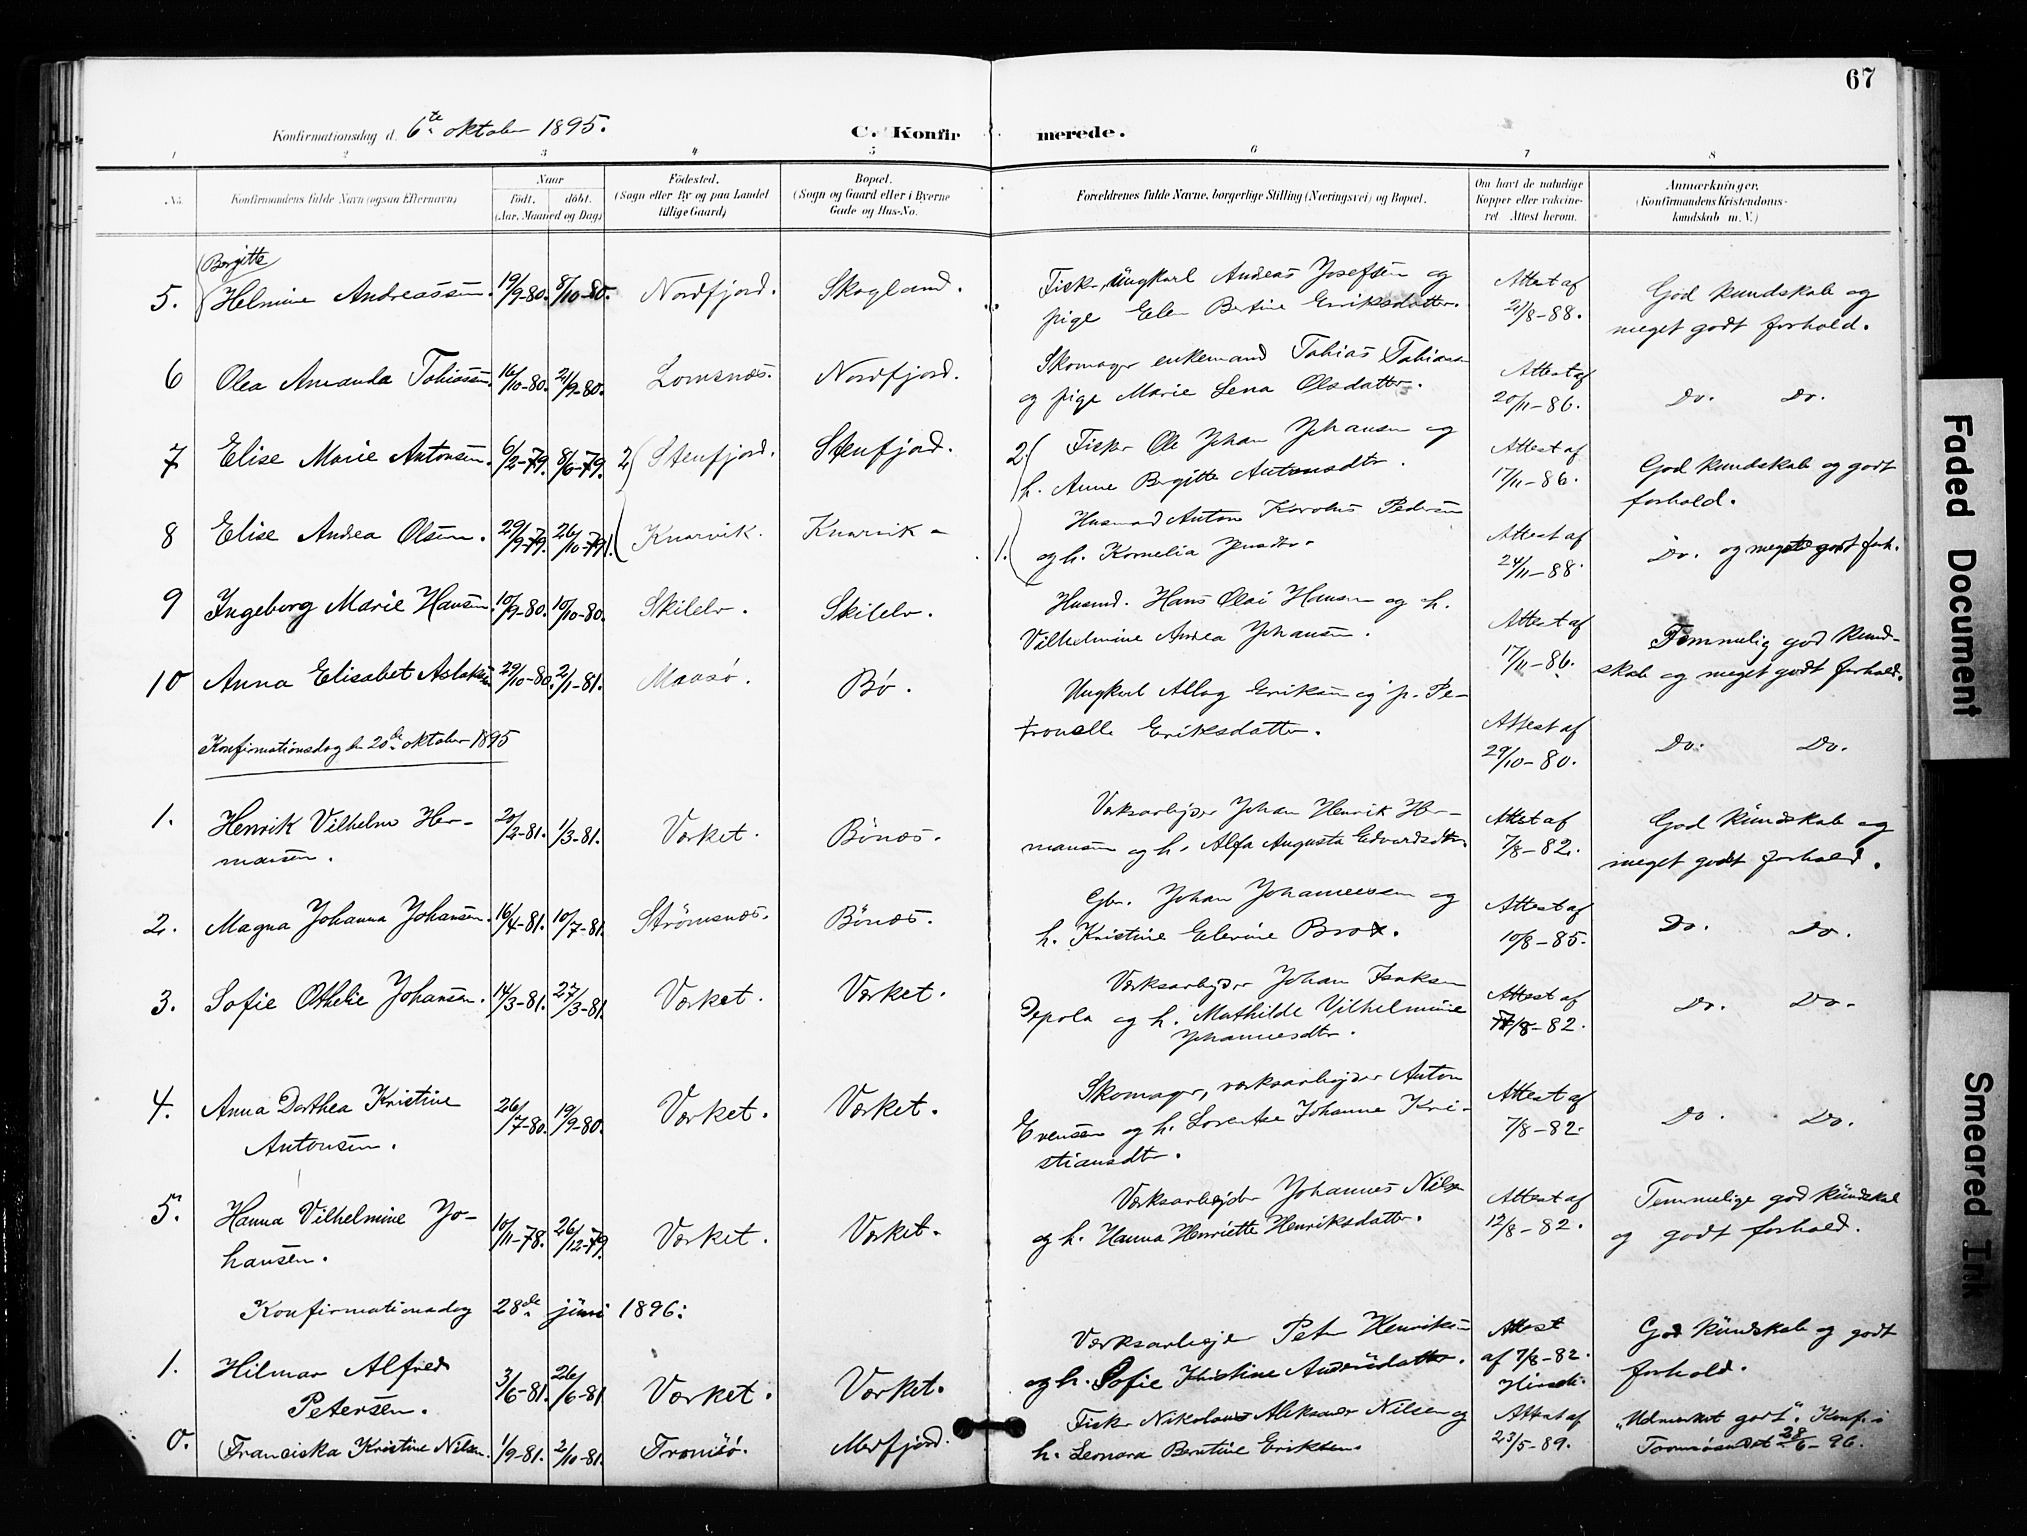 67
Konfirmationsdag d. 6te oktober 1895.
C. Konfirmerede.
1 2 3 4 5 6 7 8
No. Konfirmandens fulde Navn (ogsaa Efternavn) Naar født. døbt. (Aar, Maaned og Dag) Fødested. (Sogn eller By og paa Landet tillige Gaard) Bopæl. (Sogn og Gaard eller i Byerne Gade og Hus-No. Forældrenes fulde Navne, borgerlige Stilling (Næringsvei) og Bopæl. Om havt de naturlige Kopper eller vakcineret Attest herom. Anmærkninger. (Konfirmandens Kristendomskundskab m. V.)
Bergitte
5. Helmine Andreassen. 19/9-80. 8/10-80. Nordfjord. Skogland. Fisker, ungkarl Andreas Josefsen og
pige Elen Bertine Eriksdatter. Attest af 21/8-88. God kundskab og
meget godt forhold.
6 Olea Amanda Tobiassen. 16/10-80. 21/9-80. Lomsnæs. Nordfjord. Skomager enkemand Tobias Tobiassen
og pige Marie Lena Olsdatter. Attest af 20/11-86. Do. Do.
7 Elise Marie Antonsen. 6/2-79. 8/6-79. 2 Stenfjord. Stenfjord. 2. Fisker Ole Johan Johansen og
h. Anne Bergitte Antonsdtr. Attest af 17/11-86. God kundskab og godt
forhold.
8 Elise Andrea Olsen. 29/9-79. 26/10-79. 1. Knarvik. Knarvik 1. Husmand Anton Karolus Pedersen
og h. Kornelia Jensdtr. Attest af 24/11-88. Do. og meget godt forh.
9 Ingeborg Marie Hansen. 10/9-80. 10/10-80. Skilelv. Skilelv. Husmd. Hans Olai Hansen og h.
Vilhelmine Andrea Johansen. Attest af 17/11-86. Temmelig god kund-
skab og meget godt forhold.
10 Anna Elisabet Aslaksen 29/10-80. 2/1-81. Maasø. Bø. Ungkarl Aslag Eriksen og p. Pe-
tronelle Eriksdatter. Attest af 29/10-80. Do. Do.
Konfirmationsdag den 20de oktober 1895
1. Henrik Vilhelm Her-
mansen. 20/2-81. 1/3-81. Værket. Bønæs. Værksarbejder Johan Henrik Her-
mansen og h. Alfa Augusta Edvardsdtr. Attest af 7/8-82. God kundskab og
meget godt forhold.
2. Magna Johanna Johansen. 16/4-81. 10/7-81. Strømsnæs. Bønæs. Gbr. Johan Johannessen og
h. Kristine Elevine Brox. Attest af 10/8-85. Do. Do.
3. Sofie Othelie Johansen. 14/3-81. 27/3-81. Værket. Værket. Værksarbejder Johan Isaksen
Depola og h. Mathilde Vilhelmine
Johannesdtr. Attest af 7/8-82. Do. Do.
4. Anna Dorthea Kristine
Antonsen. 26/7-80. 19/9-80. Værket. Værket. Skomager, værksarbejder Anton
Evensen og h. Lorentse Johanne Kri-
stiansdtr. Attest af 7/8-82. Do. Do.
5. Hanna Vilhelmine Jo-
hansen. 10/11-78. 26/12-79. Værket. Værket. Værksarbejder Johannes Nilsen
og h. Hanna Henriette Henriksdatter. Attest af 12/8-82. Temmelige god kundskab
og godt forhold.
Konfirmationsdag 28de juni 1896:
1. Hilmar Alfred
Petersen. 3/6-81. 26/6-81 Værket. Værket. Værksarbejder Peter Henriksen
og h. Sofie Kristine Andersdatter. Attest af 7/8-82. God kundskab og godt
forhold.
0. Franciska Kristine Nilsen. 1/9-81. 2/10-81. Tromsø. Mefjord. Fisker Nikolaus Aleksander Nilsen og
h. Leonara Berntine Eriksen. Attest af 23/5-89. "Udmerket godt". Konf. i
Tromsøsundet 28/6-96.
Faded Document
Smeared Ink